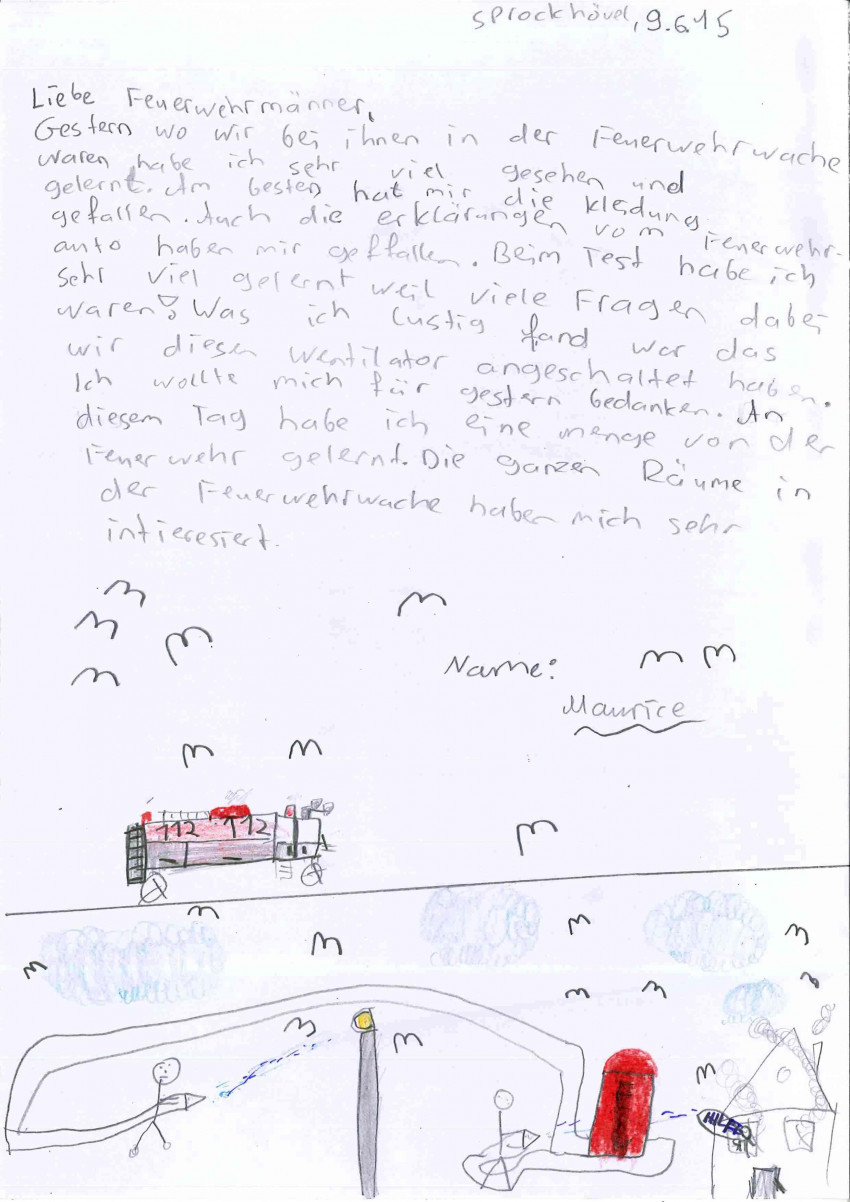 Sprockhövel, 9.6.15
Liebe Feuerwehrmänner,
Gestern wo wir bei ihnen in der Feuerwehrwache
waren habe ich sehr viel gesehen und
gelernt. Am besten hat mir die kledung
gefallen. Auch die erklärungen vom Feuerwehr-
auto haben mir geffallen. Beim Test habe ich
sehr viel gelernt weil viele Fragen dabei
waren. Was ich lustig fand war das
wir diesen Ventilator angeschaltet haben.
Ich wollte mich für gestern bedanken. An
diesem Tag habe ich eine menge von der
Feuerwehr gelernt. Die ganzen Räume in
der Feuerwehrwache haben mich sehr
intieresiert.
Name:
Maurice
112 112
HILFE